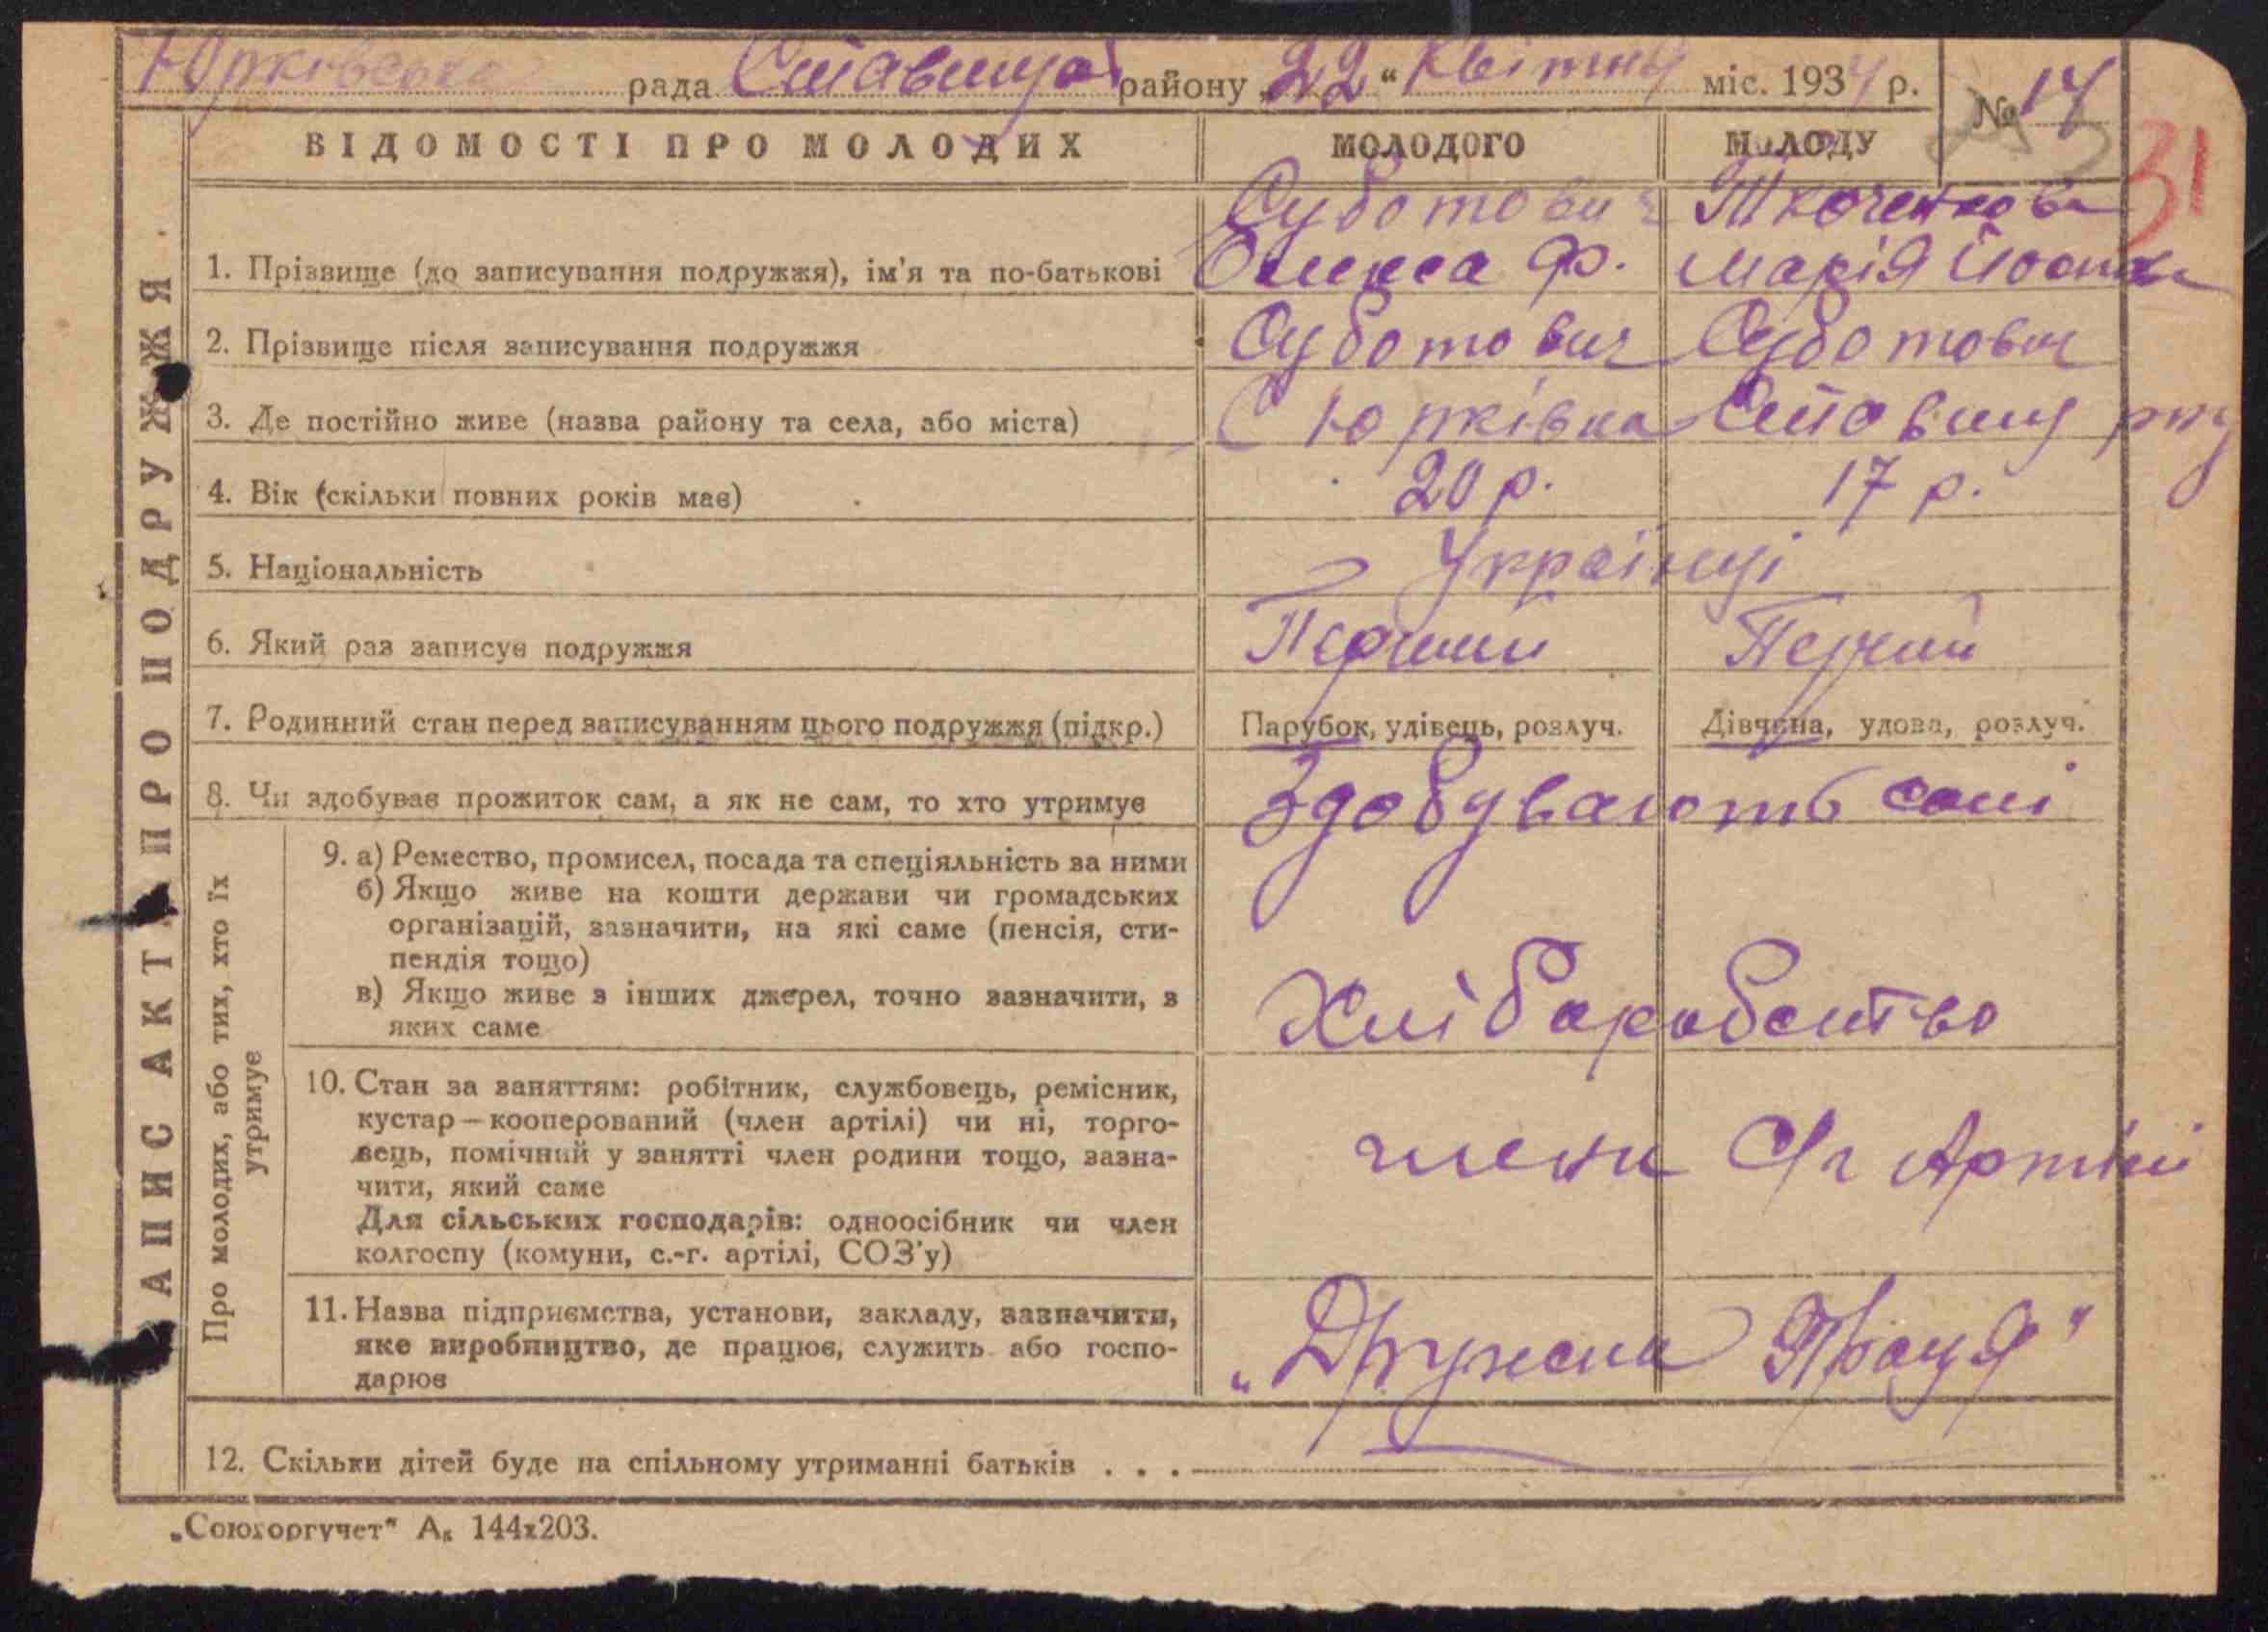 Юрківська рада Ставищан району „22“ Квітня міс. 1934 р.
№ 14
31
ВІДОМОСТІ ПРО МОЛОДИХ
МОЛОДОГО
МОЛОДУ
ЗАПИС АКТА ПРО ПОДРУЖЖЯ
1. Прізвище (до записування подружжя), ім'я та по-батькові
Суботович
Олекса Ф.
Ткаченкова
Марія
2. Прізвище після записування подружжя
Суботович
Суботович
3. Де постійно живе (назва району та села, або міста)
С Юрківка Ставищ р-ну
4. Вік (скільки повних років має)
20 р.
17 р.
5. Національність
Українці
6. Який раз записує подружжя
Перший
Перший
7. Родинний стан перед записуванням цього подружжя (підкр.)
Парубок, удівець, розлуч.
Дівчина, удова, розлуч.
8. Чи здобуває прожиток сам, а як не сам, то хто утримує
Здобувають самі
Про молодих, або тих, хто їх
утримує
9. а) Ремество, промисел, посада та спеціяльність за ними
б) Якщо живе на кошти держави чи громадських
організацій, зазначити, на які саме (пенсія, сти-
пендія тощо)
в) Якщо живе з інших джерел, точно зазначити, з
яких саме
Хліборобство
10. Стан за заняттям: робітник, службовець, ремісник,
кустар — кооперований (член артілі) чи ні, торго-
вець, помічний у занятті член родини тощо, зазна-
чити, який саме
Для сільських господарів: одноосібник чи член
колгоспу (комуни, с.-г. артілі, СОЗ'у)
члени С/г Артілі
11. Назва підприємства, установи, закладу, зазначити,
яке виробництво, де працює, служить або госпо-
дарює
„Дружна Праця"
12. Скільки дітей буде на спільному утриманні батьків . . .
„Союзоргучет" А₆ 144х203.